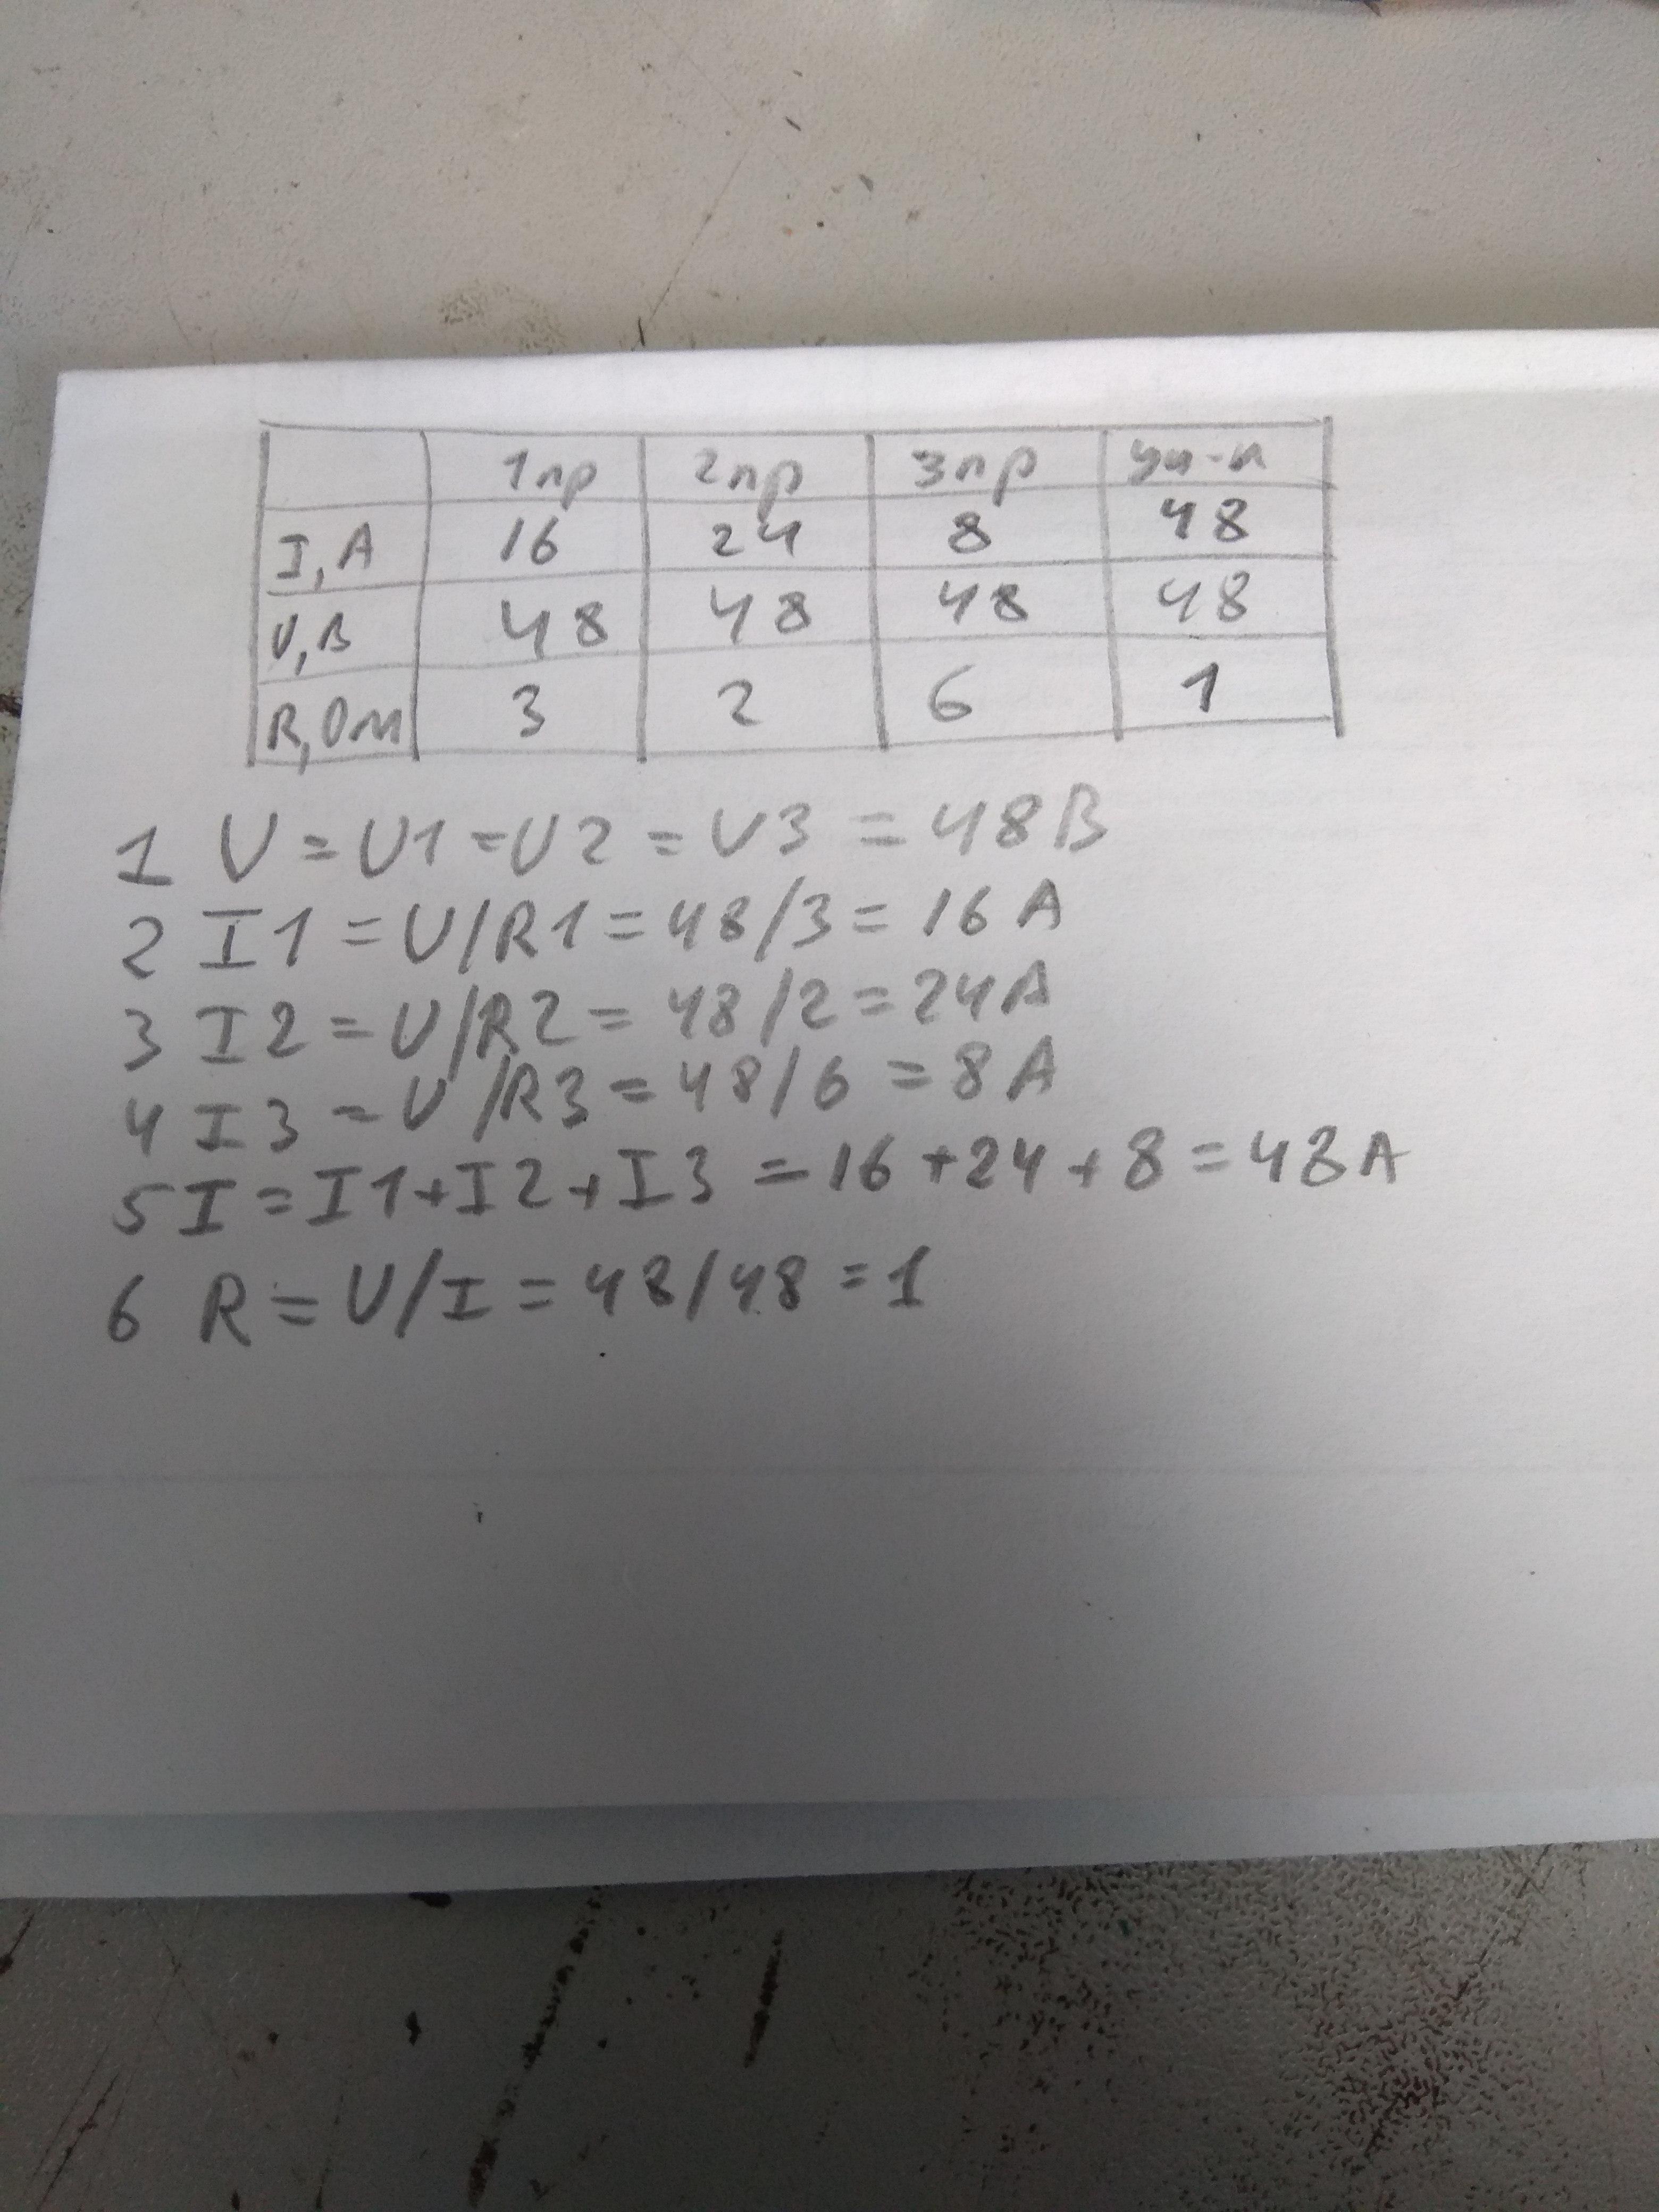 1пр 2пр 3пр уч-к
I, A 16 24 8 48
U, В 48 48 48 48
R, Ом 3 2 6 1
1 U = U1 = U2 = U3 = 48 В
2 I1 = U/R1 = 48/3 = 16 A
3 I2 = U/R2 = 48/2 = 24A
4 I3 = U/R3 = 48/6 = 8 A
5 I = I1+I2+I3 = 16+24+8 = 48A
6 R = U/I = 48/48 = 1